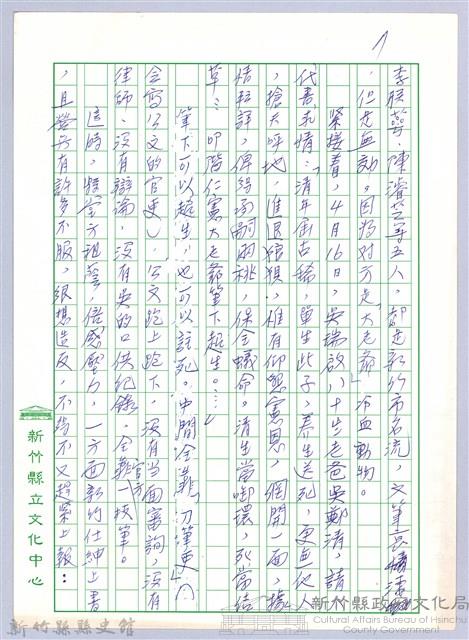 7
李朕萼、陳濬芝等五人,都是新竹市名流,文筆
,但尤無効。因為對方是「大老爺」冷血動物。
緊接着,4月16日,吳瑞啟八十生老爸吳鄭清,請
代書求情:「清年届古稀,單生此子,養生送死,更無他人
,搶天呼地,進退狼狽,惟有仰懇憲恩,網開一面,據
情轉詳,俾得承嗣兩祧,保全蟻命。清生當啣環,死當結
草……叩階仁憲大老爺筆下超生。……」
筆下可以超生,也可以註死。中間全靠「刀筆吏」(
会寫公文的官吏),公文跑上跑下,沒有当面審詢,沒有
律師、沒有辯論,沒有吳的口供紀錄,全靠官方一枝筆。
這時,特堂方祖蔭,倍感壓力,一方面新竹仕紳上書
,且
有許多不服,很想造反,不得不又趕緊上報:
新竹縣立文化中心
新竹縣縣史館
新竹縣政府文化局
Cultural Affairs Bureau of Hsinchu
County Government